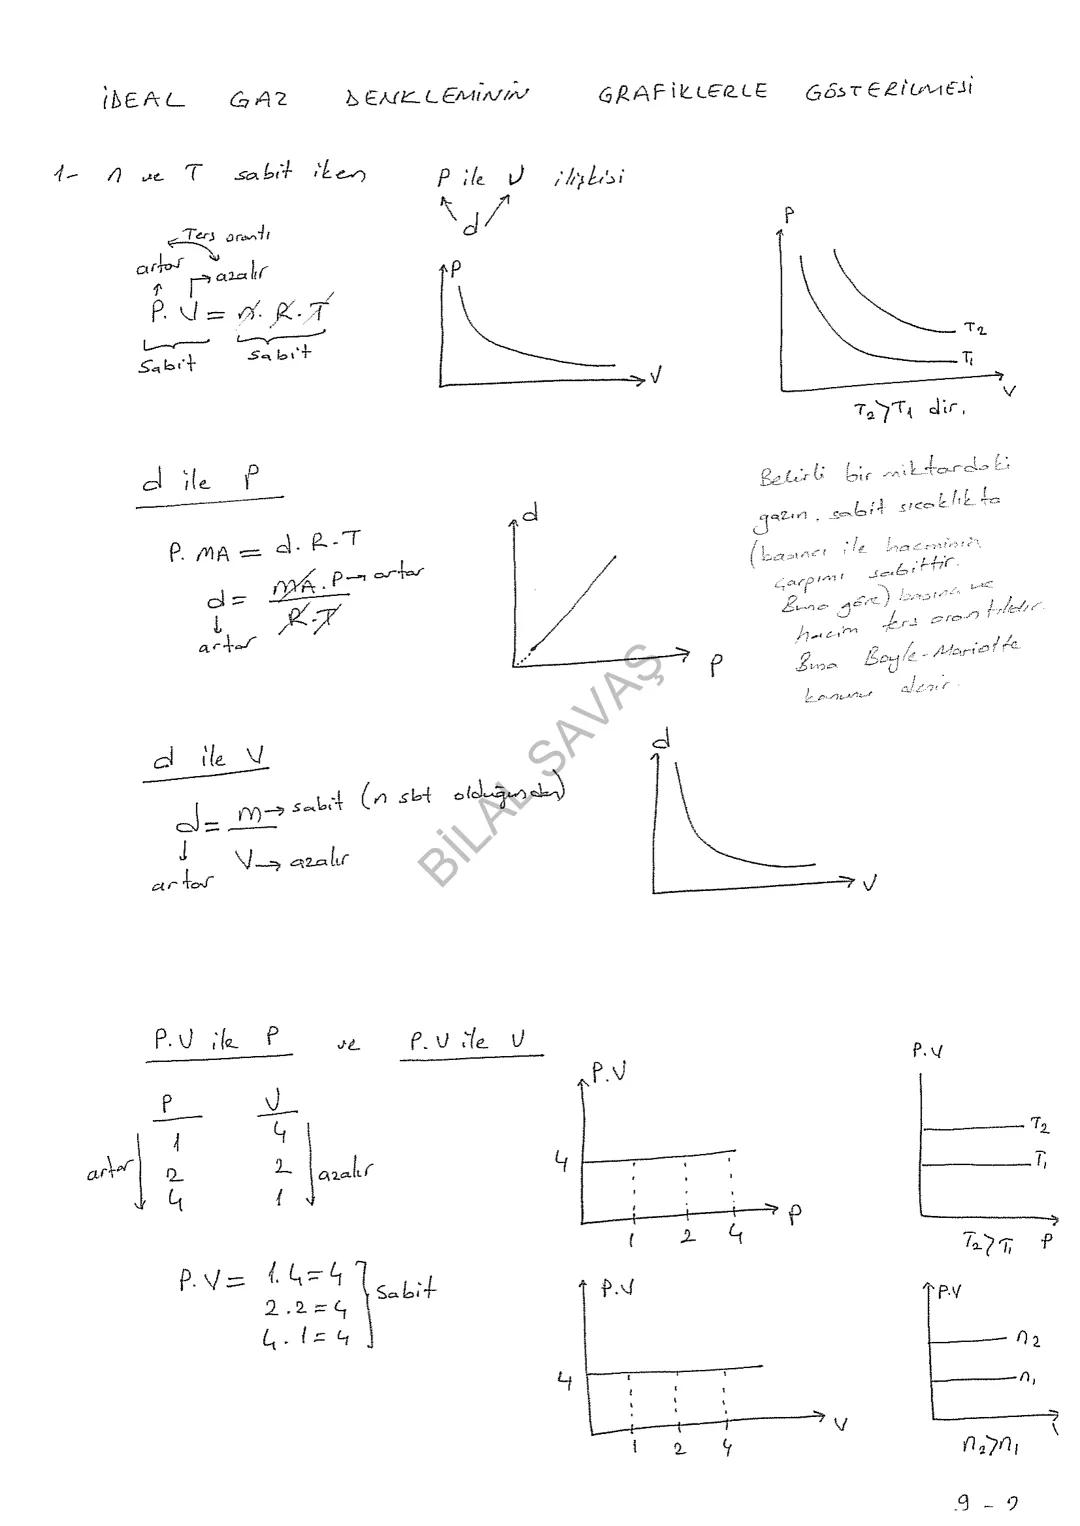 İDEAL GAZ DENKLEMİNİN GRAFİKLERLE GÖSTERİLMESİ
1- n ve T sabit iken P ile V ilişkisi
d
Ters orantı
artar
azalır
P. V = n. R. T
Sabit
sabit
P
V
P
T2
T1
V
T2>T1 dir.
d ile P
P. MA = d. R. T
d = MA. P → artar
R. T
artar
d
P
Belirli bir miktardaki
gazın, sabit sıcaklıkta
(basıncı ile hacminin
çarpımı sabittir.
Buna göre) basınç ve
hacim ters orantılıdır.
Buna Boyle-Mariotte
kanunu denir.
d ile V
d = m → sabit (n sbt olduğundan)
V → azalır
artar
d
V
BİLAL SAVAŞ
P.V ile P ve P.V ile V
P V
1 4
artar 2 2 azalır
4 1
P.V = 1.4=4
2.2=4
4.1=4
Sabit
P.V
4
1 2 4
P
P.V
T2
T1
T2>T1 P
P.V
4
1 2 4
V
P.V
n2
n1
n2>n1